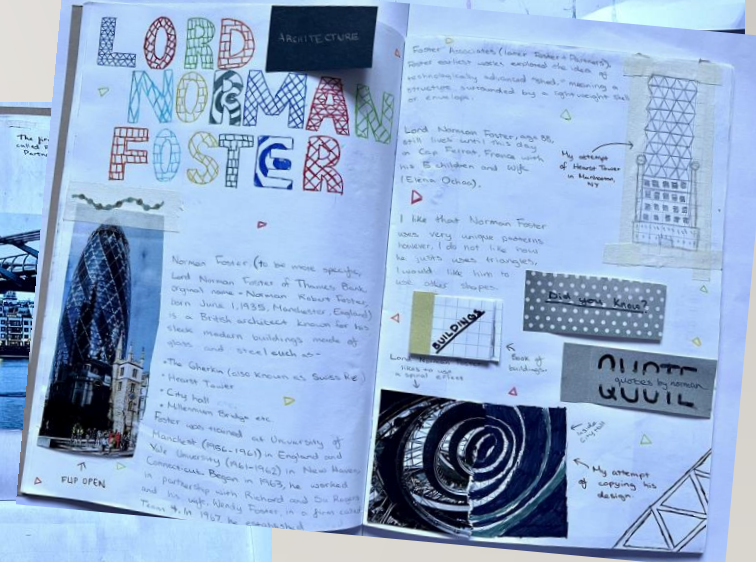 The fir
called
Partn
LORD
NORMAN
FOSTER
ARCHITECTURE
FLIP OPEN
Norman Foster (to be more specific,
Lord Norman Foster of Thames Bank,
original name - Norman Robert Foster,
born June 1, 1935, Manchester, England)
is a British architect known for his
sleek modern buildings made of
glass and steel such as -
• The Gherkin (also known as Swiss Re)
• Hearst Tower
• City hall
• Millennium Bridge etc.
Foster was trained at University of
Manchest (1956-1961) in England and
Yale University (1961-1962) in New Haven,
Connecticut. Began in 1963, he worked
in partnership with Richard and Su Rogers
and his wife, Wendy Foster, in a firm called
Team 4. In 1967, he established
Foster Associates (later Foster + Partners).
Foster earliest works explored the idea of
technologically advanced "shed", meaning a
structure surrounded by a lightweight shell
or envelope.
Lord Norman Foster, age 88,
still lives until this day
in Cap Ferrat, France with
his 5 children and wife
(Elena Ochoa).
My attempt
of Hearst Tower
in Manhattan,
NY
I like that Norman Foster
uses very unique patterns
however, I do not like how
he just uses triangles.
I would like him to
use other shapes.
BUILDINGS
Book of
buildings
Did you Know?
QUOTE
quotes by norman
QUOTE
likes to use
a spiral effect
Inside
City Hall
My attempt
of copying his
design.